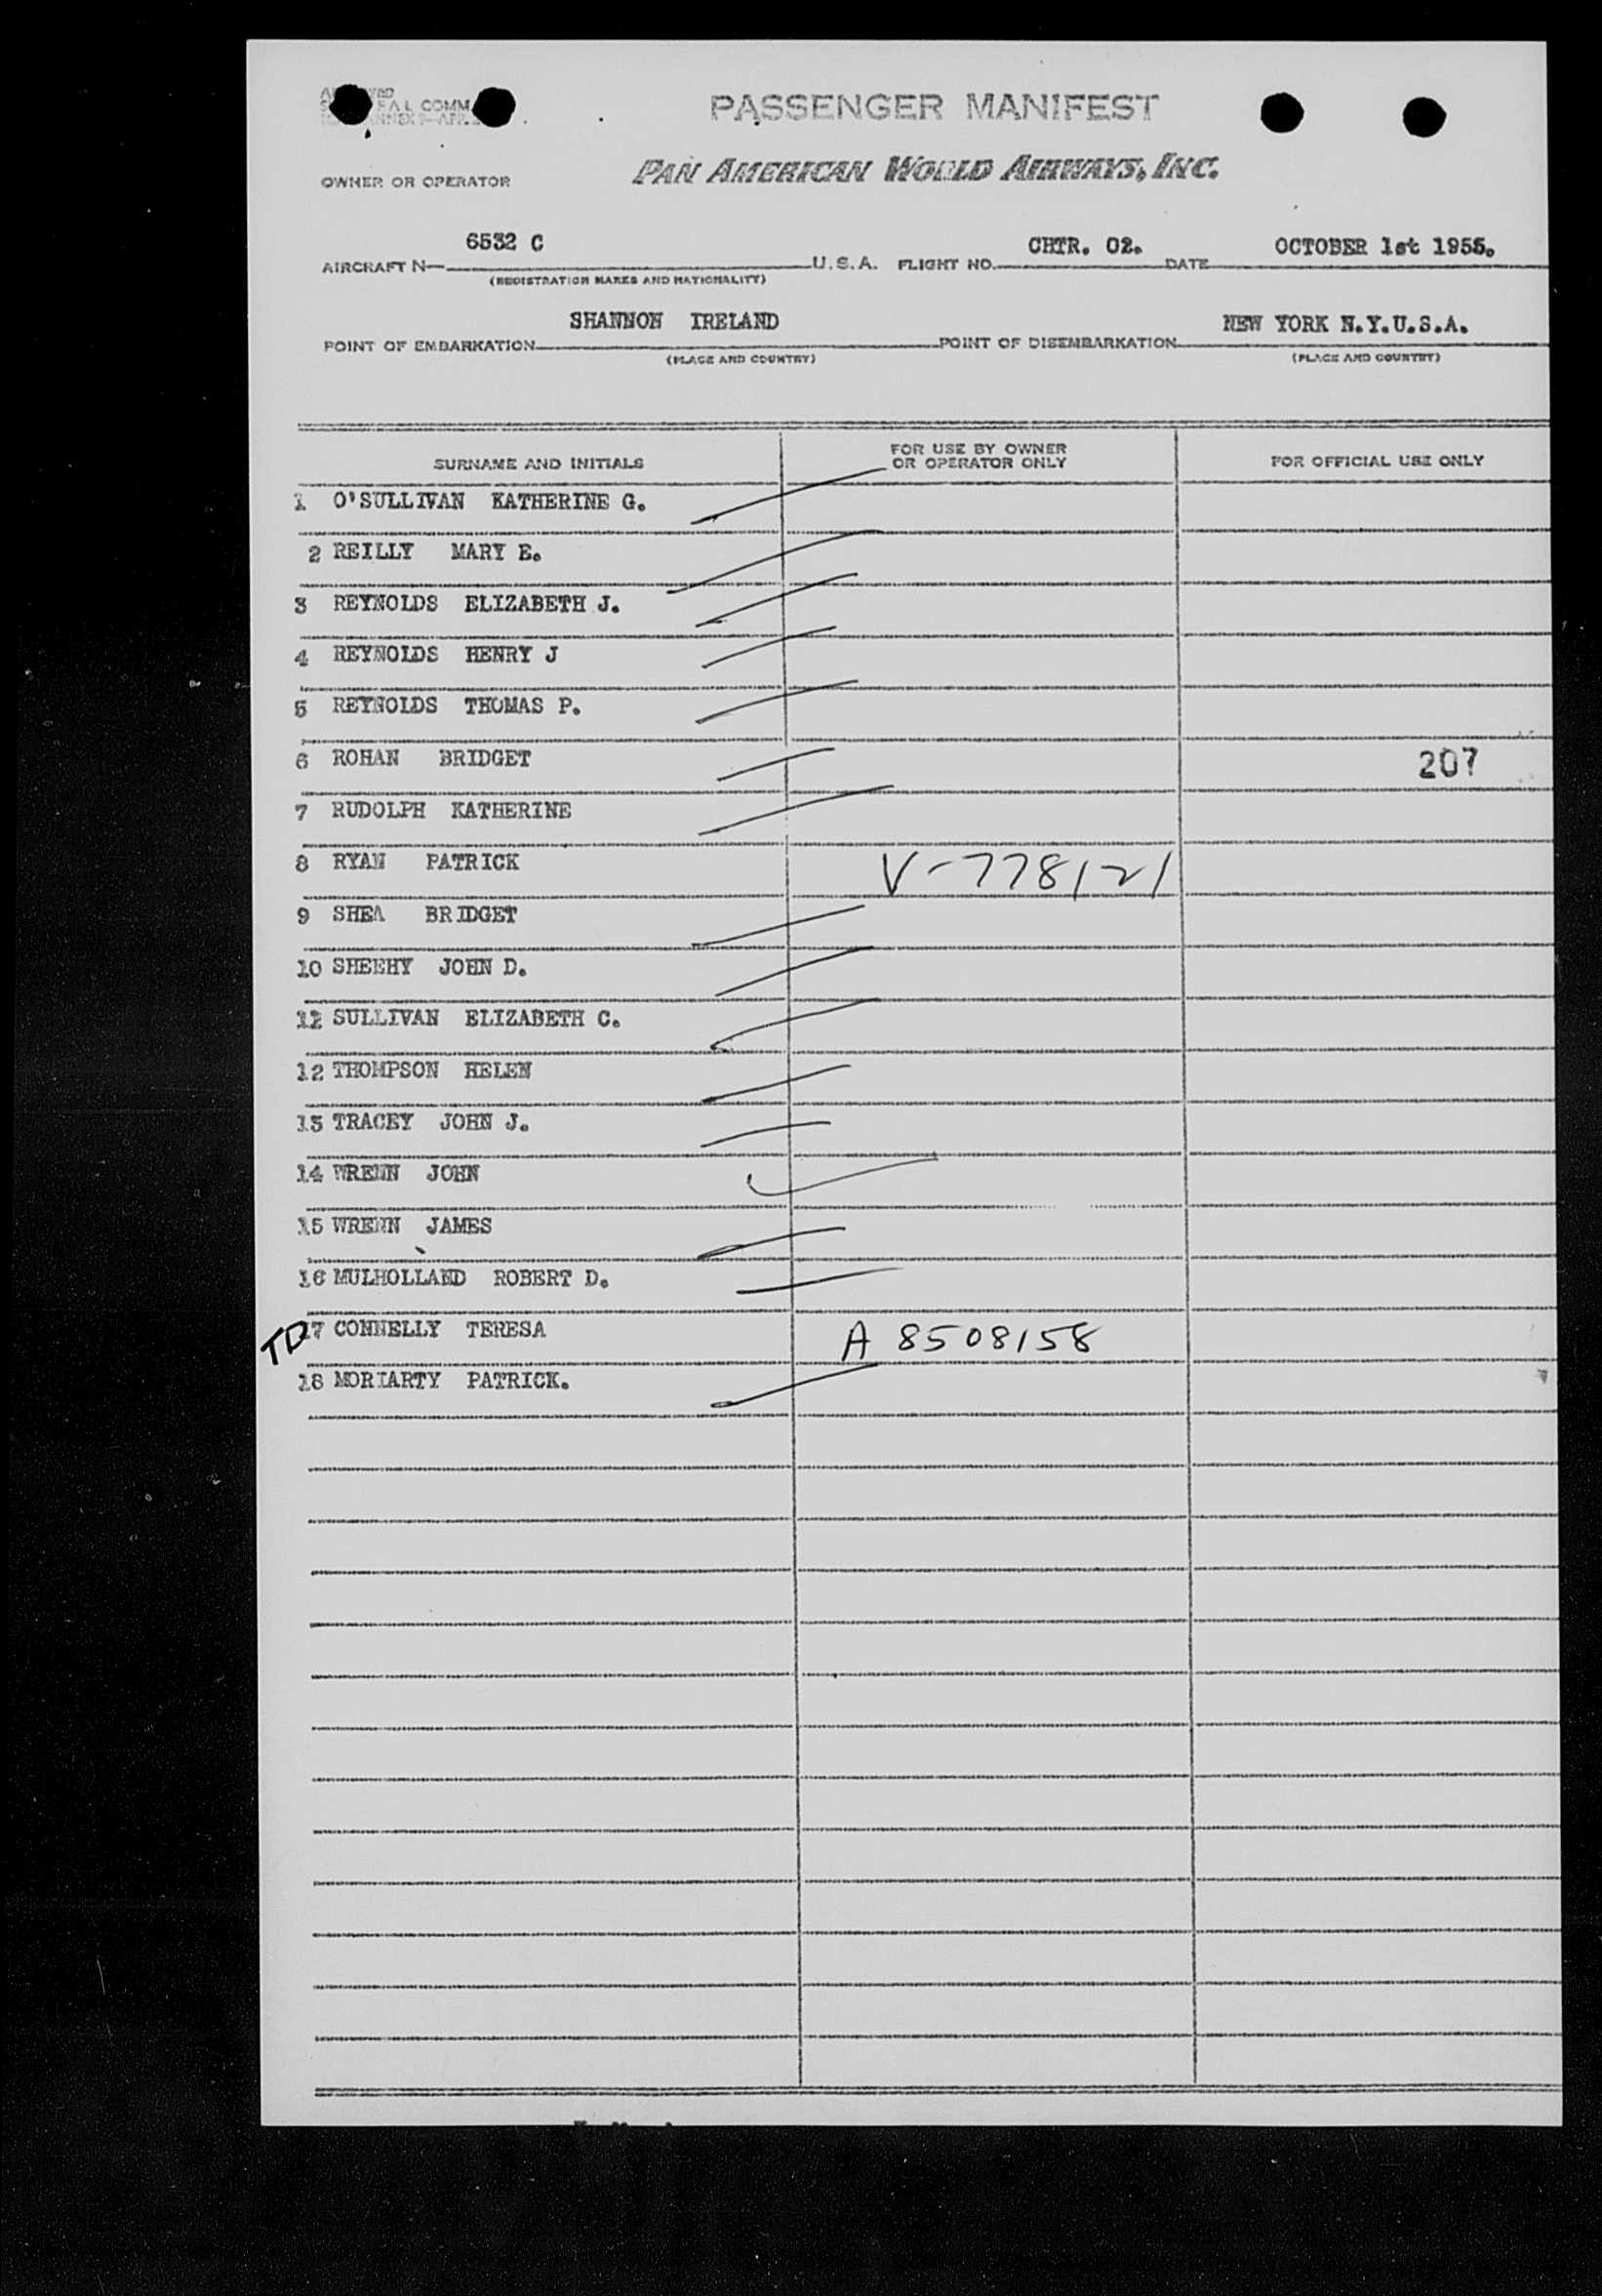 PASSENGER MANIFEST
PAN AMERICAN WORLD AIRWAYS, INC.
OWNER OR OPERATOR
AIRCRAFT N— 6532 C U.S.A. FLIGHT NO. CHTR. 02. DATE OCTOBER 1st 1955.
(REGISTRATION MARKS AND NATIONALITY)
POINT OF EMBARKATION SHANNON IRELAND POINT OF DISEMBARKATION NEW YORK N.Y.U.S.A.
(PLACE AND COUNTRY) (PLACE AND COUNTRY)
SURNAME AND INITIALS FOR USE BY OWNER OR OPERATOR ONLY FOR OFFICIAL USE ONLY
1 O'SULLIVAN KATHERINE G.
2 REILLY MARY E.
3 REYNOLDS ELIZABETH J.
4 REYNOLDS HENRY J
5 REYNOLDS THOMAS P.
6 ROHAN BRIDGET 207
7 RUDOLPH KATHERINE
8 RYAN PATRICK V-778121
9 SHEA BRIDGET
10 SHEEHY JOHN D.
12 SULLIVAN ELIZABETH C.
12 THOMPSON HELEN
13 TRACEY JOHN J.
14 WRENN JOHN
15 WRENN JAMES
16 MULHOLLAND ROBERT D.
TD 17 CONNELLY TERESA A 8508158
18 MORIARTY PATRICK.